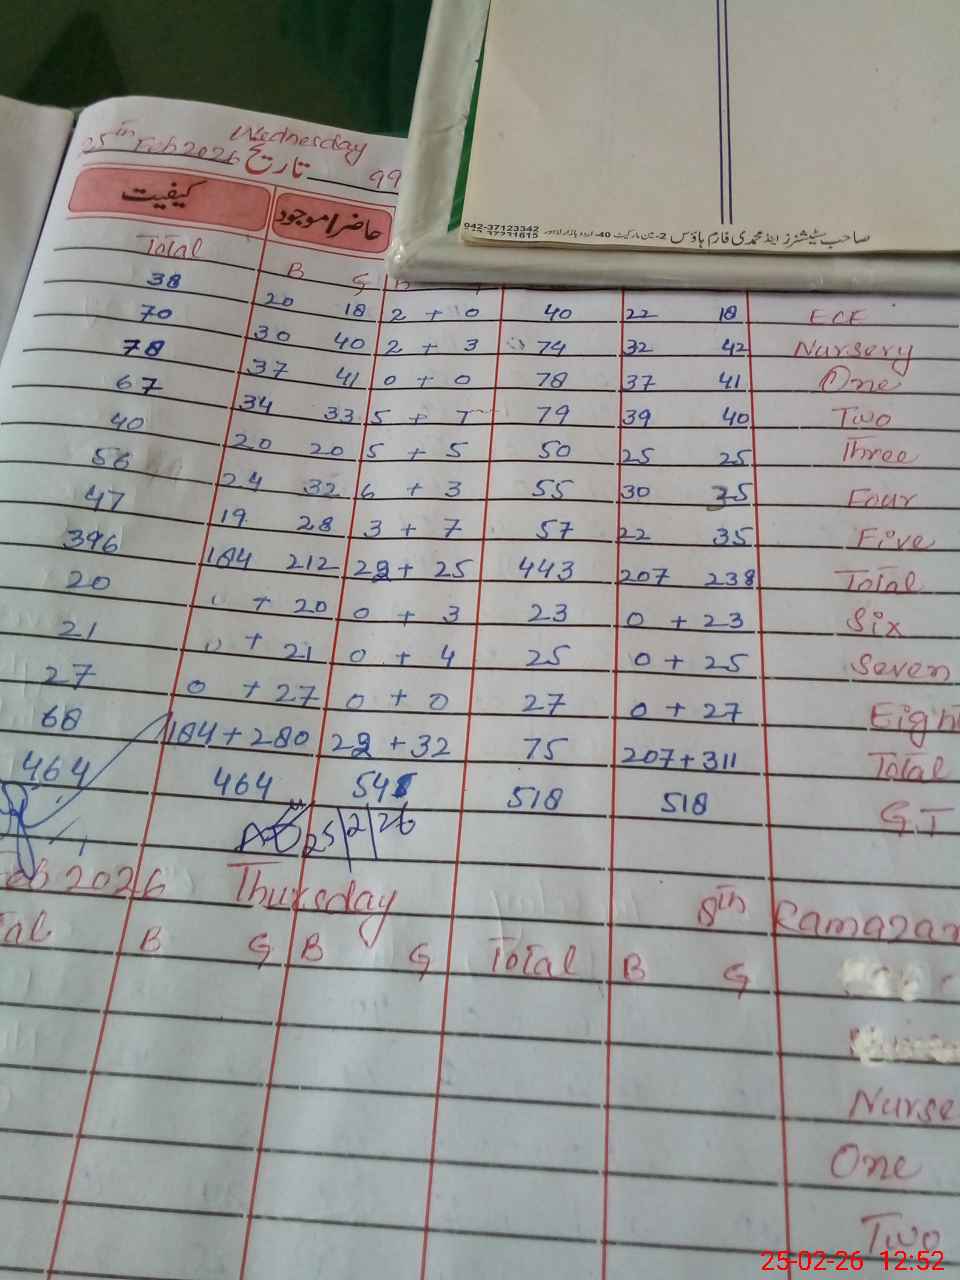 صاحب سٹیشنرز اینڈ محمدی فارم ہاؤس 2- مین مارکیٹ 40- اردو بازار لاہور 042-37123342
Wednesday
25th Feb 2026 تاریخ 99
کیفیت حاضر/موجود
Total B G B
38 20 18 2 + 0 40 22 18 ECE
70 30 40 2 + 3 74 32 42 Nursery
78 37 41 0 + 0 78 37 41 One
67 34 33 5 + 7 79 39 40 Two
40 20 20 5 + 5 50 25 25 Three
56 24 32 6 + 3 55 30 35 Four
47 19 28 3 + 7 57 22 35 Five
396 184 212 22 + 25 443 207 238 Total
20 + 20 0 + 3 23 0 + 23 Six
21 0 + 21 0 + 4 25 0 + 25 Seven
27 0 + 27 0 + 0 27 0 + 27 Eight
68 184 + 280 22 + 32 75 207 + 311 Total
464 464 54 518 518 G.T
25/2/26
Feb 2026 Thursday 8th Ramazan
tal B G B G Total B G
Nurse
One
Two
25-02-26 12:52